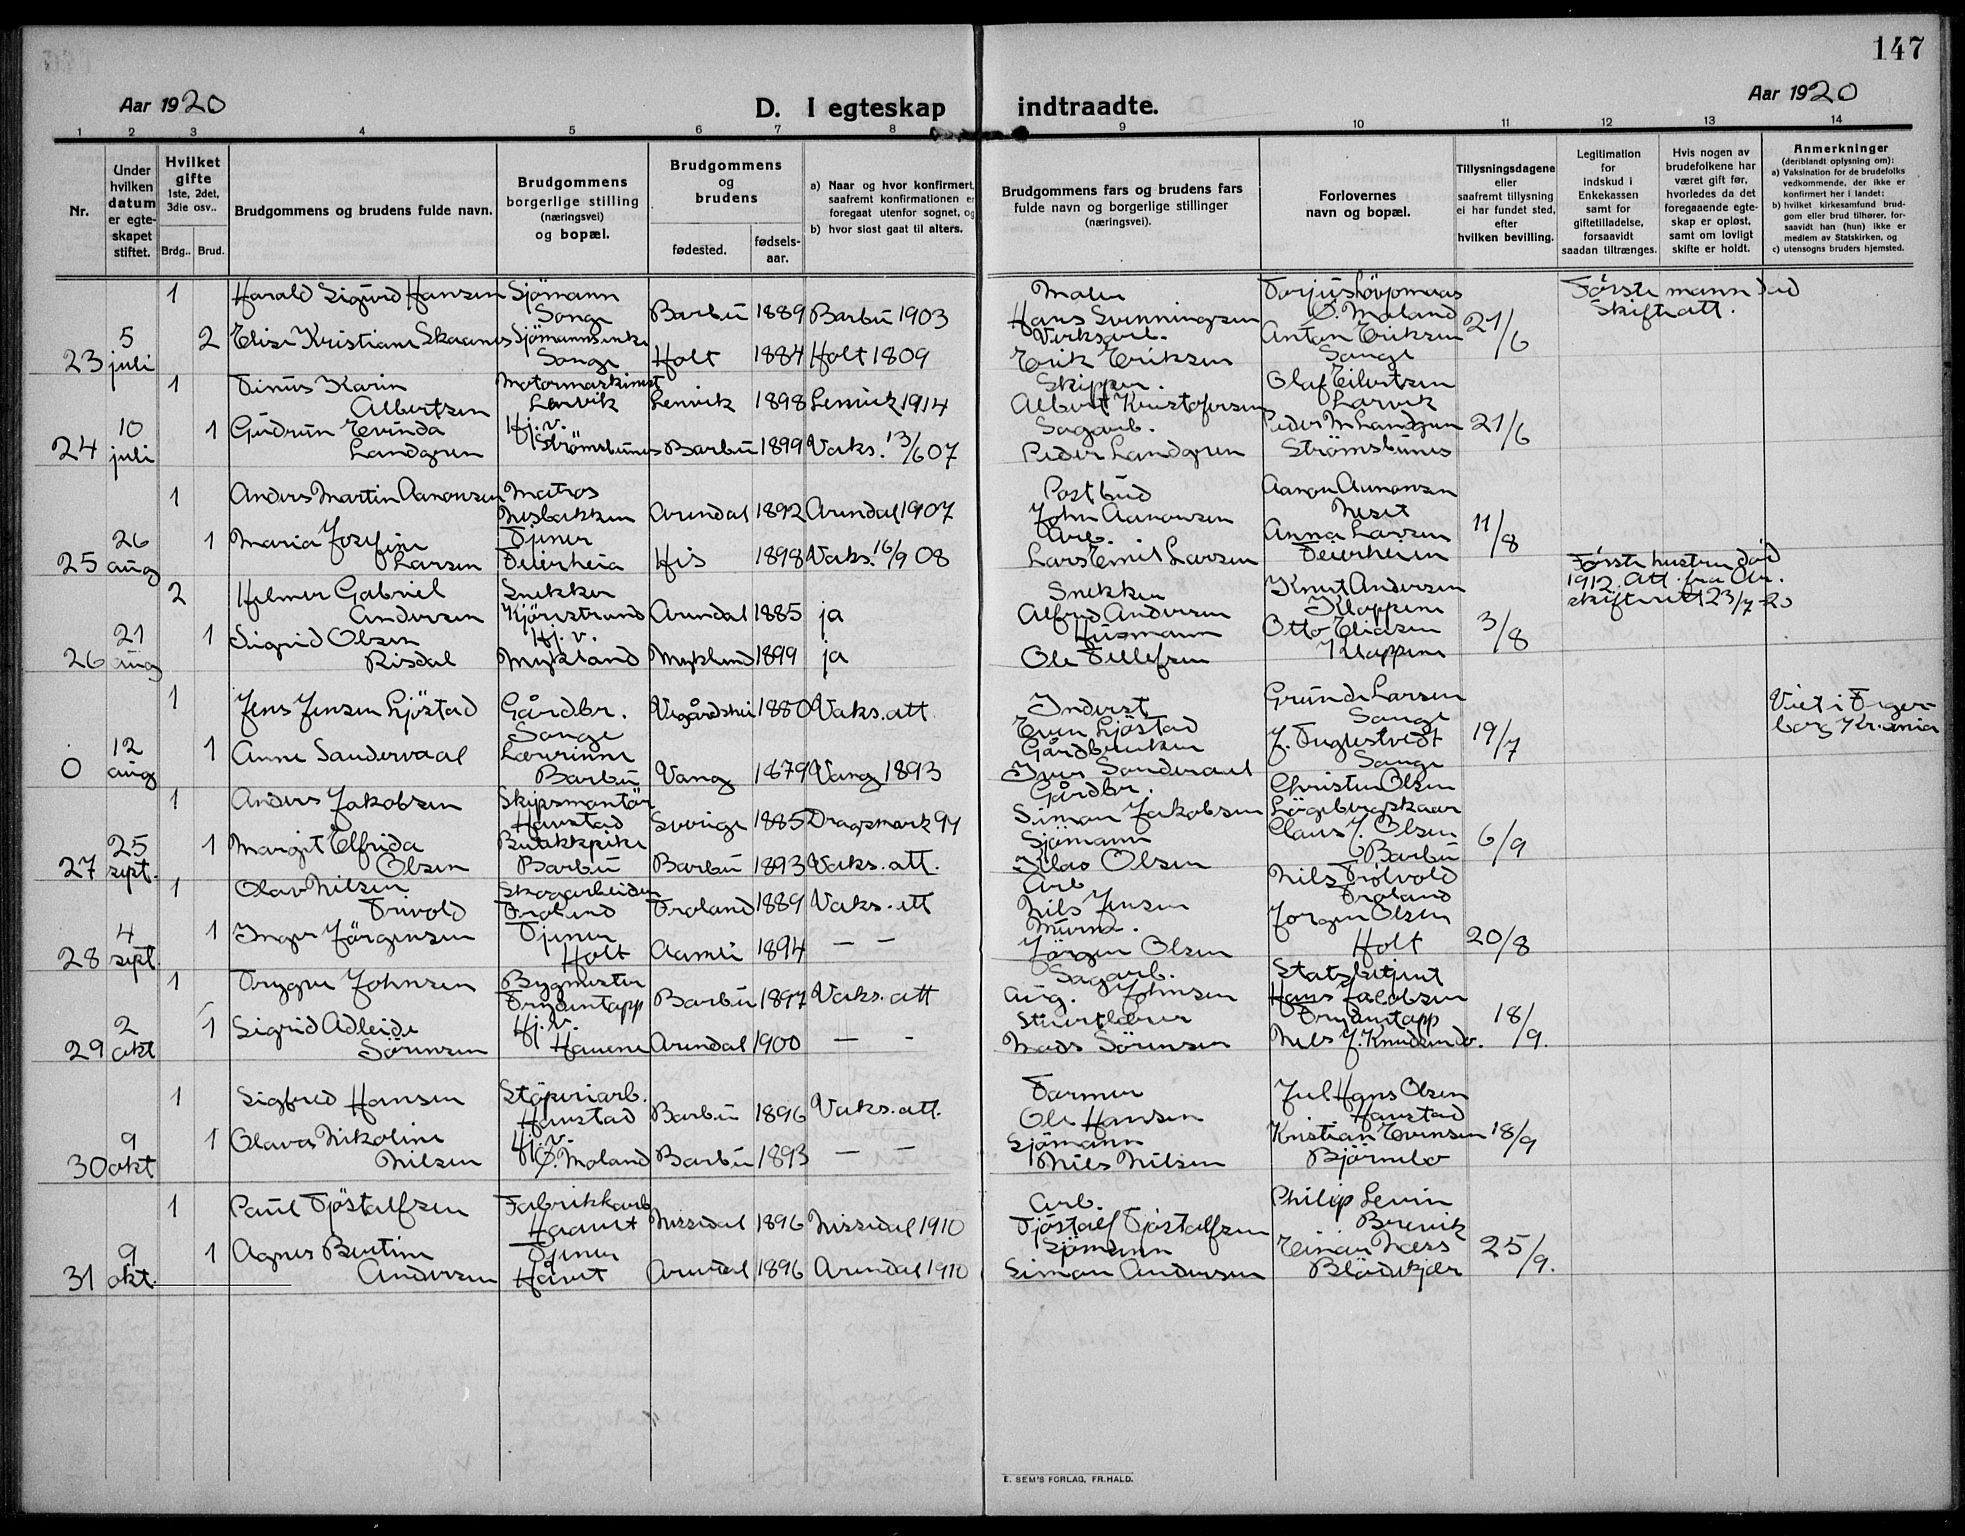 147
Aar 1920
D. I egteskap indtraadte.
Aar 1920
1 2 3 4 5 6 7 8 9 10 11 12 13 14
Nr.
Under hvilken datum er egteskapet stiftet.
Hvilket gifte 1ste, 2det, 3die osv..
Brdg.. Brud.
Brudgommens og brudens fulde navn.
Brudgommens borgerlige stilling (næringsvei) og bopæl.
Brudgommens og brudens
fødested. fødselsaar.
a) Naar og hvor konfirmert, saafremt konfirmationen er foregaat utenfor sognet, og
b) hvor sidst gaat til alters.
Brudgommens fars og brudens fars fulde navn og borgerlige stillinger (næringsvei).
Forlovernes navn og bopæl.
Tillysningsdagene eller saafremt tillysning ei har fundet sted, efter hvilken bevilling.
Legitimation for indskud i Enkekassen samt for giftetilladelse, forsaavidt saadan tiltrænges.
Hvis nogen av brudefolkene har været gift før, hvorledes da det foregaaende egteskap er opløst, samt om lovligt skifte er holdt.
Anmerkninger
(deriblandt oplysning om):
a) Vaksination for de brudefolks vedkommende, der ikke er konfirmert her i landet;
b) hvilket kirkesamfund brudgom eller brud tilhører, forsaavidt han (hun) ikke er medlem av Statskirken, og
c) utensogns bruders hjemsted.
1 Harald Sigurd Hansen Sjömann Songe Barbu 1889 Barbu 1903 Maler Hans Svenningsen Ö. Moland Første mann död Skifteatt.
23 5 juli 2 Elise Kristiane Sjömannsenke Songe Holt 1884 Holt 1809 Verksarb. Erik Eriksen Anton Eriksen Songe 21/6
1 Tinus Karin Albertsen Motormaskinist Larvik Lenvik 1898 Lenvik 1914 Skipper. Albert Kristofersen Olaf Eilertsen Larvik
24 10 juli 1 Gudrun Evinda Landgren Hj. v. Strømsbunes Barbu 1899 Vaks. 13/6 07 Sagarb. Peder Landgren Peder M Landgren Strømsbunes 21/6
1 Anders Martin Aanonsen Matros Nesbakken Arendal 1892 Arendal 1907 Postbud John Aanonsen Aaron Aanonsen Neset
25 26 aug 1 Maria Josefine Larsen Tjener Feierheia His 1898 Vaks. 16/9 08 Arb. Lars Emil Larsen Anna Larsen Feierheien 11/8
2 Helmer Gabriel Andersen Snekker Kjöristrand Arendal 1885 ja Snekker Alfred Andersen Knut Andersen Kloppene Første hustru död 1912. Att. fra Ar. skifterett 23/7-20
26 21 aug 1 Sigrid Olsen Risdal Hj. v. Mykland Mykland 1899 ja Husmann Ole Tellefsen Otto Eliasen Kloppene 3/8
1 Jens Jensen Ljöstad Gårdbr. Songe Vegårdshei 1880 Vaks. att. Inderst Even Ljöstad Gunde Larsen Songe Viet i Fagerborg Kr.ania
0 12 aug 1 Anne Sandervaal Lærerinne Barbu Vang 1879 Vang 1893 Gårdbruker Iver J. Fuglestvedt Songe 19/7
1 Anders Jakobsen Skipsmontör Havstad Sverige 1885 Dragsmark 99 Gårdbr. Simon Jakobsen Christen Olsen Lögebergskaar
27 25 sept. 1 Margit Elfrida Olsen Butikkpike Barbu Barbu 1893 Vaks. att. Sjömann Klas Olsen Claus J. Olsen Barbu 6/9
1 Olav Nilsen Trivold Skogarbeider Froland Froland 1889 Vaks. att Arb Nils Jensen Nils Froland
28 4 sept. 1 Inger Jörgensen Tjener Holt Aamli 1894 — — Murer. Jörgen Olsen Jorgen Olsen Holt 20/8
1 Trygve Johnsen Bygmester Frydentopp Barbu 1897 Vaks. att Sagarb. Aug. Johnsen Statsbetjent Hans Jacobsen Frydentopp
29 2 okt 1 Sigrid Adleide Sörensen Hj. v. Havene Arendal 1900 — - Mads Sörensen Nils J. Knudsen do. 18/9.
1 Sigfred Hansen Stöperiarb. Havstad Barbu 1896 Vaks. att. Farmer Ole Hansen Jul Hans Olsen Havstad
30 9 okt 1 Olava Nikoline Nilsen Hj. v. Ö. Moland Barbu 1893 — — Sjömann Nils Nilsen Kristian Evensen Björnebo 18/9
1 Paul Tjöstolfsen Fabrikkarb Haavet Nissedal 1896 Nissedal 1910 Arb. Tjöstolf Tjöstolfsen Philip Levin Brevik
31 9 okt. 1 Agnes Bertine Andersen Tjener Håvet Arendal 1896 Arendal 1910 Sjömann Simon Andersen Einar Næss Blödekjær 25/9.
E. SEM'S FORLAG, FR.HALD.